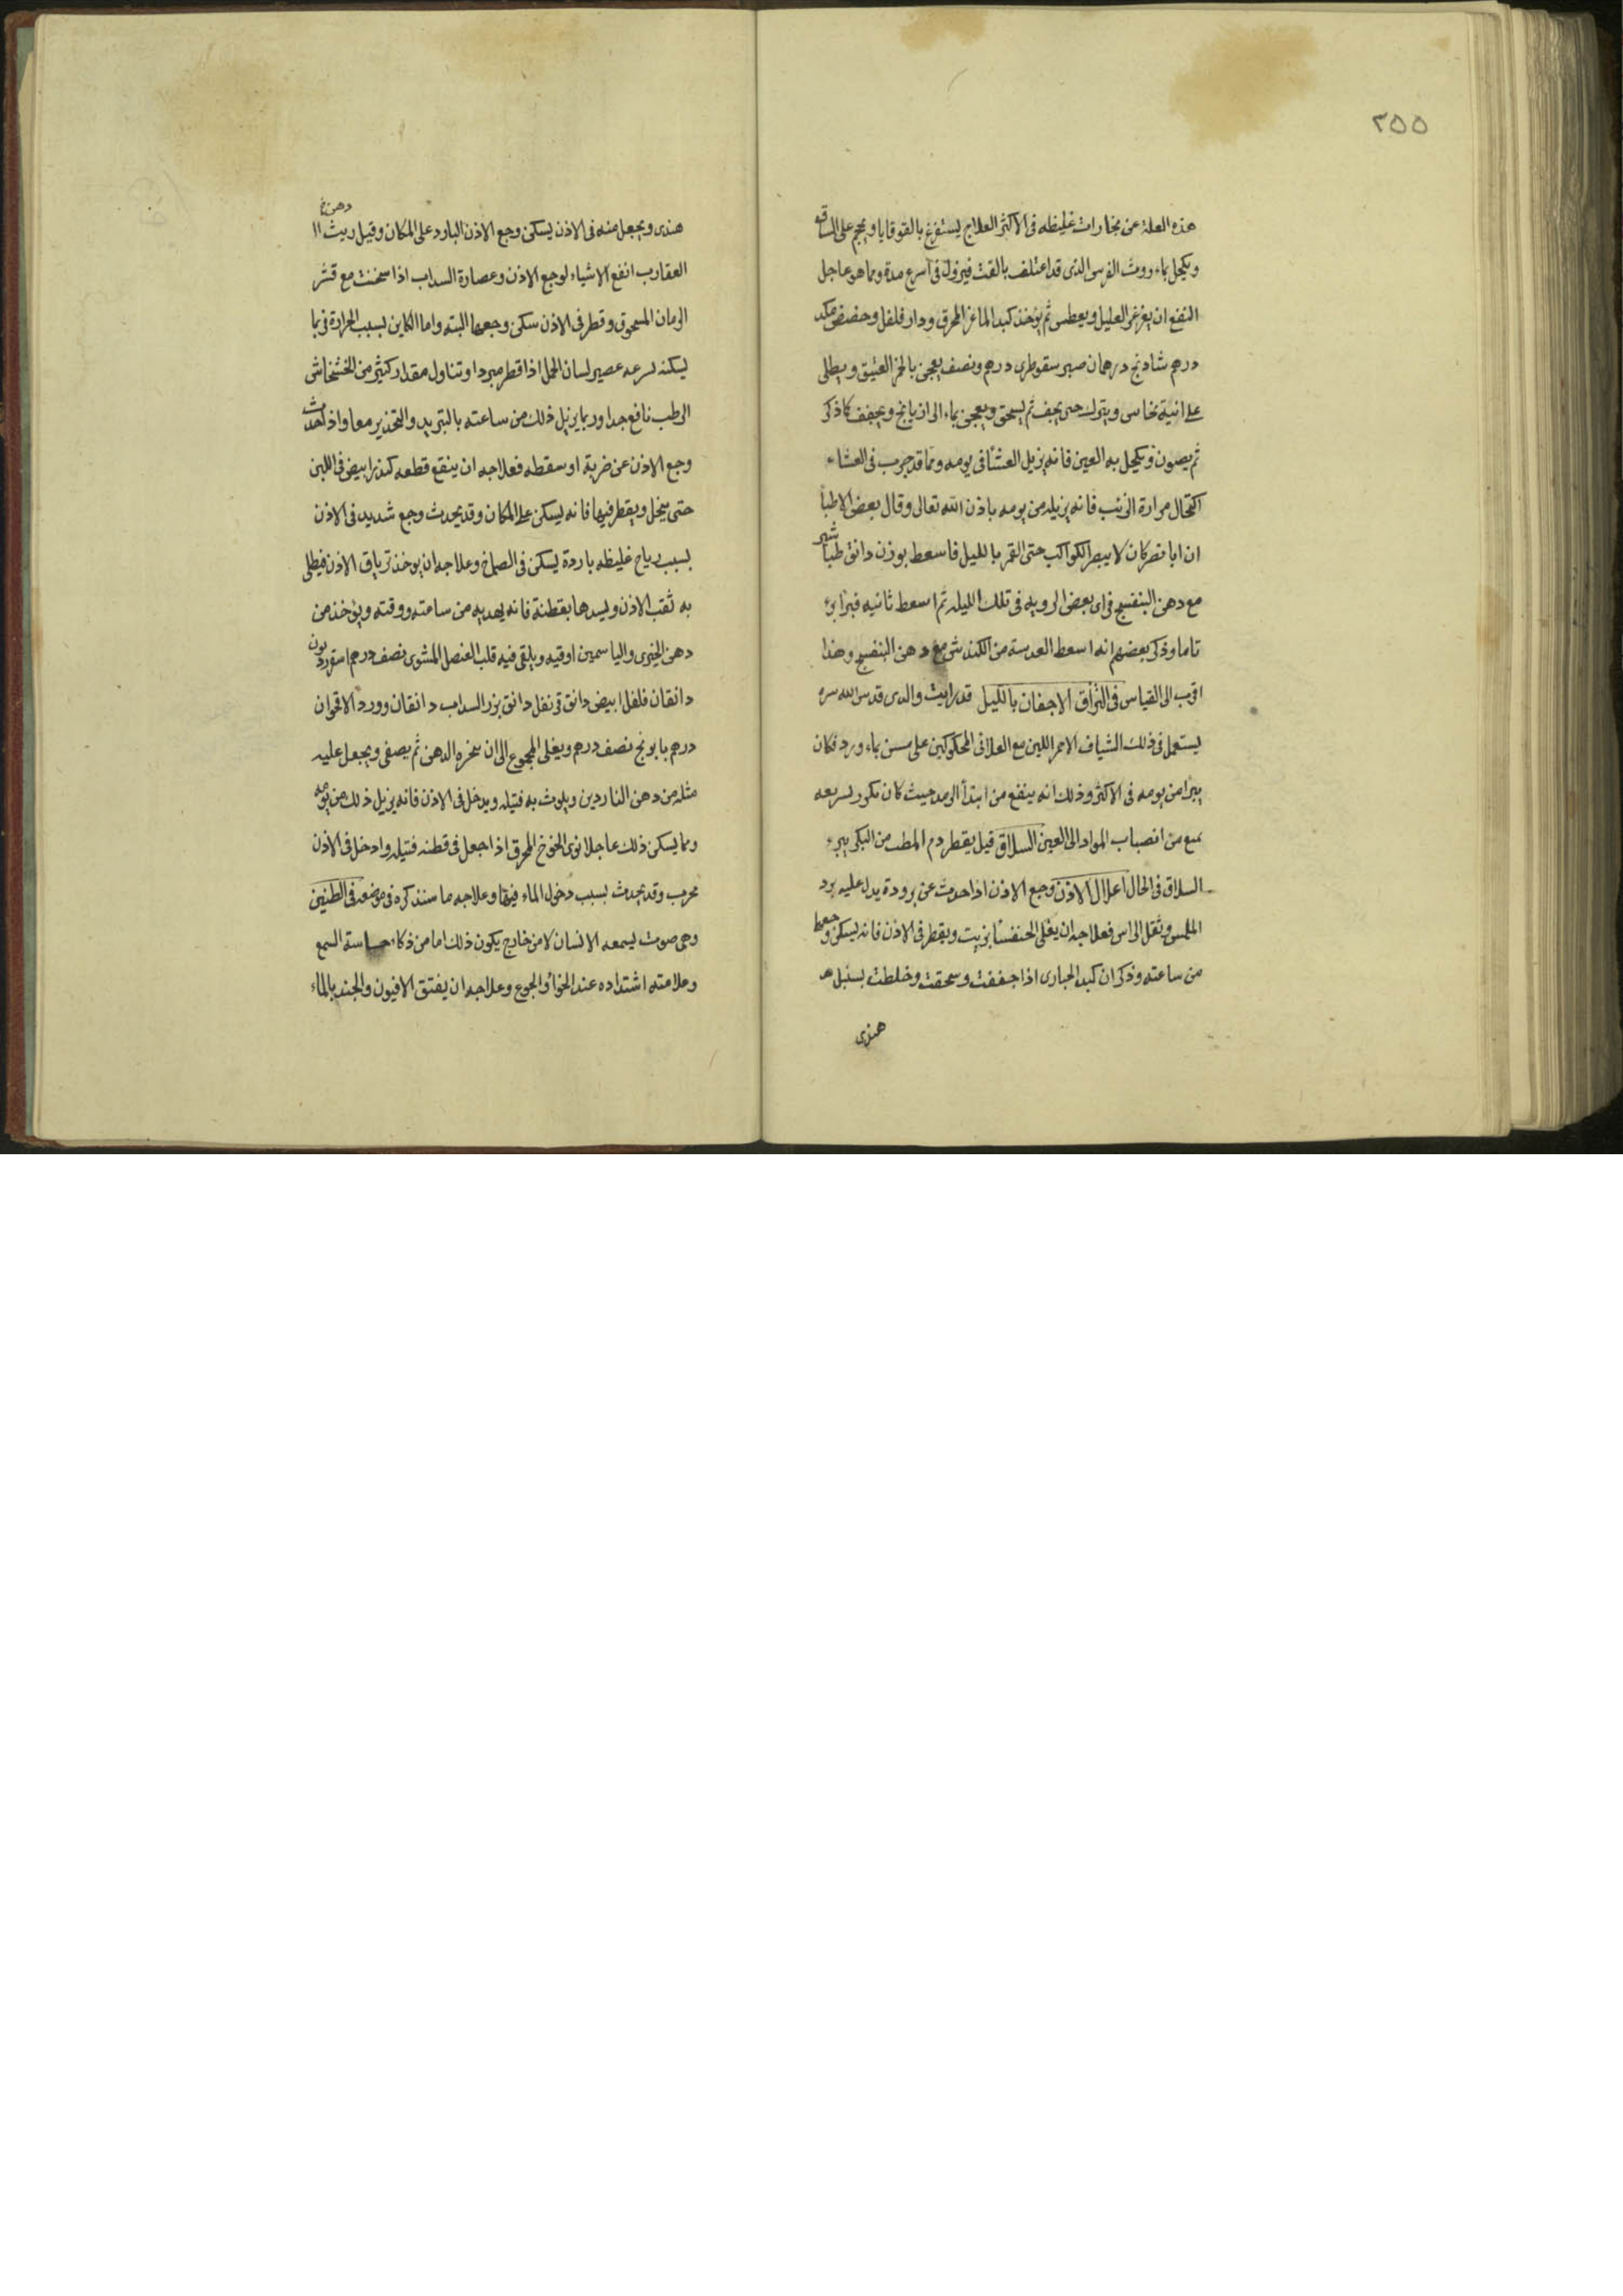 ٢٥٥
هذه العلة عن بخارات غليظه فى الاكثر العلاج يستفرغ بالقوقايا ويحجم على الساقه
ويكحل بماء روث الفرس الذى قد اعتلف بالقت فيزول فى اسرع مدة ومما هو عاجل
النفع ان يغرغر العليل ويعطس ثم يؤخذ كبد الماعز المحرق ودار فلفل وحضض مكد
درهم شادنج درهمان صبر سقوطرى درهم ونصف يعجن بالخمر العتيق ويطلى
على انية نخاس ويترك حتى يجف ثم يسحق ويعجن بماء الرازيانج ويجفف كما ذكر
ثم يصون ويكحل به العين فانه يزيل العشا فى يومه ومما قد جرب فى العشاء
اكتحال مرارة الذئب فانه يزيله من يومه باذن الله تعالى وقال بعض الاطبا
ان ابا نصر كان لا يبصر الكواكب حتى القمر بالليل فاسعط بوزن دانق طباشير
مع دهن البنفسج فراى بعض الرويه فى تلك الليله ثم اسعط ثانيه فبرا برء
تاما وذكر بعضهم انه اسعط العدسة من الكندش مع دهن البنفسج وهذا
اقرب الى القياس فى التزاق الاجفان بالليل قد رايت والدى قدس الله سره
يستعمل فى ذلك الشياف الاحمر اللين مع العلافى المحكوكين على مسن بماء ورد فكان
يبرا من يومه فى الاكثر وذلك انه ينفع من ابتدأ الرمد حيث كان تكور لسرعه
تمنع من انصباب المواد الى العين السلاق قيل يقطر دم المطث من البكر يبرء
السلاق فى الحال اعلال الاذن وجع الاذن اذا حدث عن برودة يدل عليه برد
الملمس وثقل الراس فعلاجه ان يغلى الخنفسا بزيت ويقطر فى الاذن فانه يسكن وجعها
من ساعته وذكر ان كبد الحبارى اذا جففت وسحقت وخلطت بسنبل هـ
هندى
دهن خ
هندى ويجعل منه فى الاذن يسكن وجع الاذن البارد على المكان وقيل ريث اا
العقارب انفع الاشياء لوجع الاذن وعصارة السداب اذا سخنت مع قشر
الرمان المسحوق وقطر فى الاذن سكن وجعها البته واما الكاين بسبب الحرارة فربما
يسكنه لسرعه عصير لسان الحمل اذا قطر مبردا وتناول مقدار كثير من الخشخاش
الرطب نافع جدا وربما يزيل ذلك من ساعته بالتبريد والتخدير معا واذا حدث
وجع الاذن عن ضربة او سقطه فعلاجه ان ينقع قطعه كندر ابيض فى اللبن
حتى ينحل ويقطر فيها فانه يسكن على المكان وقد يحدث وجع شديد فى الاذن
بسبب رياح غليظه باردة يسكن فى الصماخ وعلاجه ان يوخذ ترياق الاذن فيطلى
به ثقب الاذن ويسدها بقطنة فانه يهديه من ساعته ووقته ويؤخذ من
دهن الخيرى والياسمين اوقيه ويلقى فيه قلب العنصل المشوى نصف درهم اسقورديون
دانقان فلفل ابيض دانق قرنفل دانق بزر السداب دانقان وورد الاقحوان
درهم بابونج نصف درهم ويغلى المجموع الى ان يخره الدهن ثم يصفى ويجعل عليه
مثله من دهن الناردين ويلوث به فتيله ويدخل فى الاذن فانه يزيل ذلك من يومه
ومما يسكن ذلك عاجلا نوى الخوخ المحرق اذا جعل فى قطنه فتيله وادخل فى الاذن
مجرب وقد يحدث بسبب دخول الماء فيها وعلاجه ما سنذكره فى موضعه فى الطنين
وهى صوت يسمعه الانسان لا من خارج يكون ذلك اما من ذكاء حاسة السمع
وعلامته اشتداده عند الخواء والجوع وعلاجه ان يفتق الافيون والجند بالماء